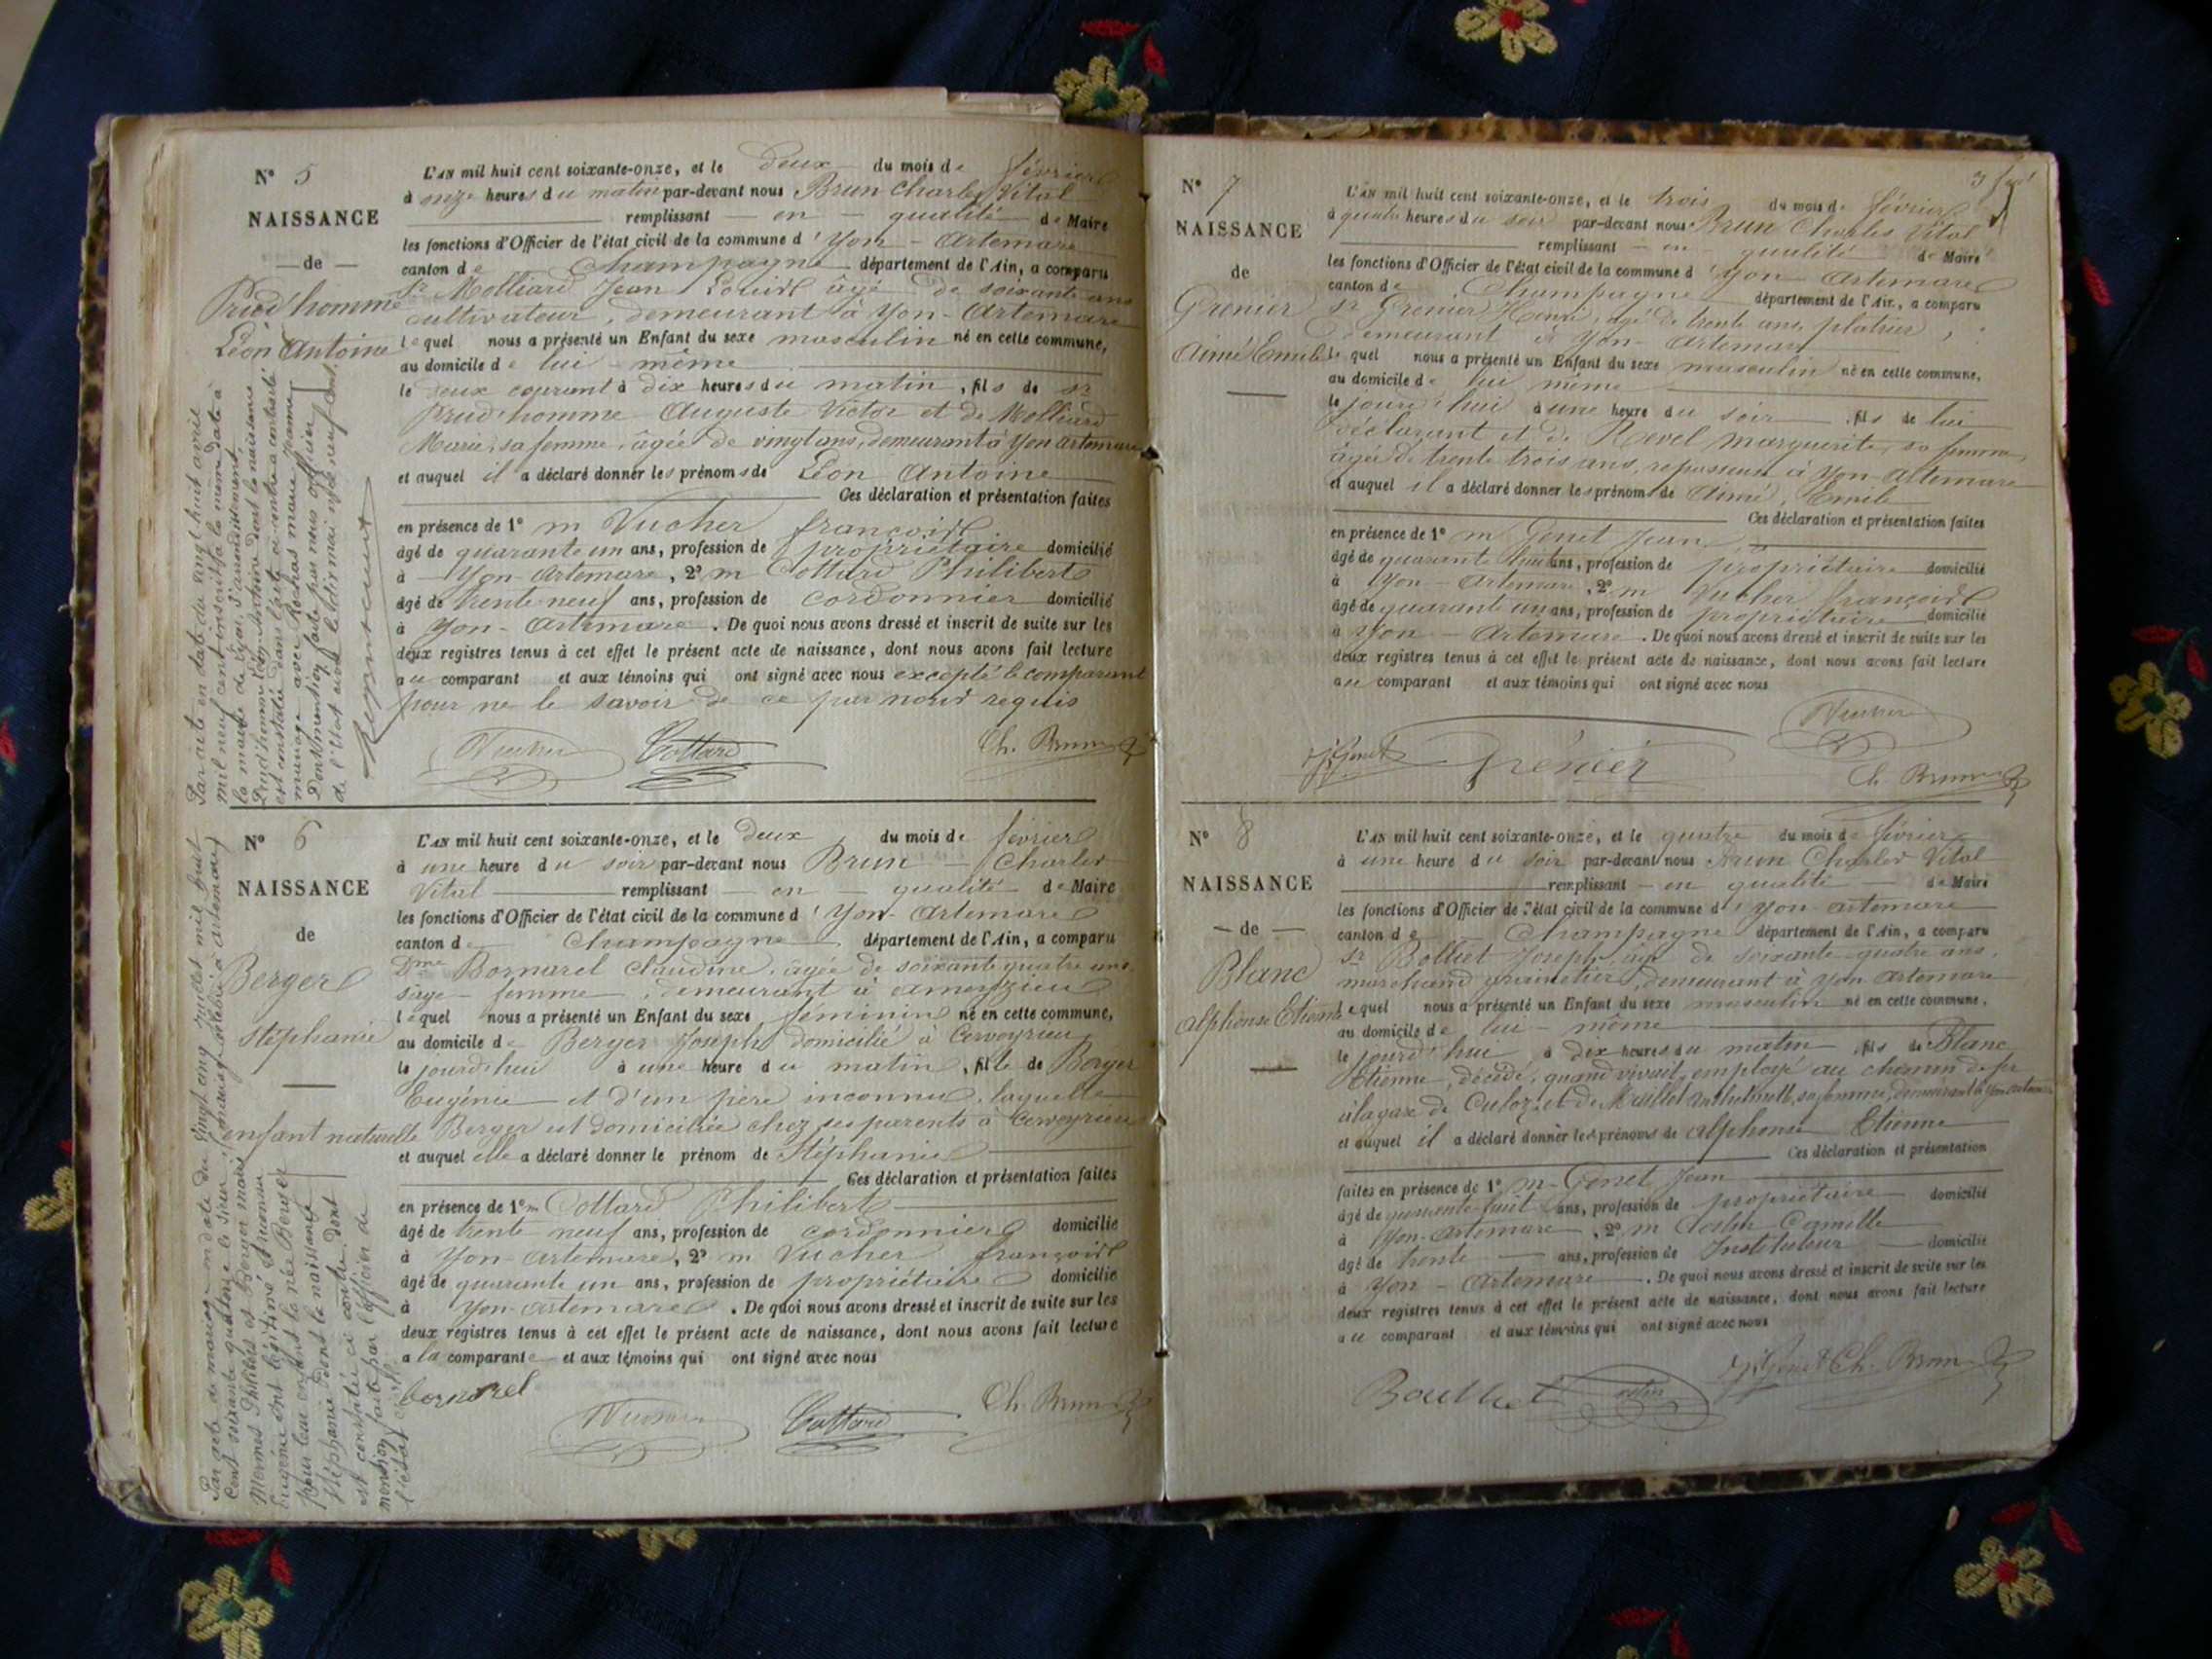 N° 5
NAISSANCE
de
Prud'homme
Léon Antoine
L'AN mil huit cent soixante-onze, et le deux du mois de février
à onze heures du matin par-devant nous Brun Charles Vital
remplissant en qualité de Maire
les fonctions d'Officier de l'état civil de la commune d'Yon-Artemare
canton de Champagne département de l'Ain, a comparu
Sr Molliard Jean Louis âgé de soixante ans
cultivateur, demeurant à Yon-Artemare
lequel nous a présenté un Enfant du sexe masculin né en cette commune,
au domicile de lui-même
le deux courant à dix heures du matin, fils de Sr
Prud'homme Auguste Victor et de Molliard
Marie, sa femme, âgée de vingt ans, demeurant à Yon Artemare
et auquel il a déclaré donner les prénoms de Léon Antoine
Ces déclaration et présentation faites
en présence de 1° m Vucher françois
âgé de quarante un ans, profession de propriétaire domicilié
à Yon-Artemare, 2° m Cottard Philibert
âgé de trente neuf ans, profession de cordonnier domicilié
à Yon-Artemare. De quoi nous avons dressé et inscrit de suite sur les
deux registres tenus à cet effet le présent acte de naissance, dont nous avons fait lecture
au comparant et aux témoins qui ont signé avec nous excepté le comparant
pour ne le savoir de ce par nous requis
Vucher Cottard Ch. Brun
Par acte en date du vingt huit avril
mil neuf cent inscrit le même date à
la mairie de
Prud'homme Léon Antoine dont la naissance
est constatée dans l'acte ci-contre a contracté
mariage avec Rochas Marie Jeanne
Dont mention faite par nous officier
de l'état civil le dix mai mil neuf cent.
N° 6
NAISSANCE
de
Berger
Stéphanie
enfant naturelle
L'AN mil huit cent soixante-onze, et le deux du mois de février
à une heure du soir par-devant nous Brun Charles
Vital remplissant en qualité de Maire
les fonctions d'Officier de l'état civil de la commune d'Yon-Artemare
canton de Champagne département de l'Ain, a comparu
Dme Bornarel Claudine, âgée de soixante quatre ans
sage-femme, demeurant à Ameyzieu
lequel nous a présenté un Enfant du sexe féminin né en cette commune,
au domicile de Berger Joseph domicilié à Cerveyrieu
le jourd'hui à une heure du matin, fille de Berger
Eugénie et d'un père inconnu, laquelle
Berger est domiciliée chez ses parents à Cerveyrieu
et auquel elle a déclaré donner le prénom de Stéphanie
Ces déclaration et présentation faites
en présence de 1° m Cottard Philibert
âgé de trente neuf ans, profession de cordonnier domicilié
à Yon-Artemare, 2° m Vucher françois
âgé de quarante un ans, profession de propriétaire domicilié
à Yon-Artemare. De quoi nous avons dressé et inscrit de suite sur les
deux registres tenus à cet effet le présent acte de naissance, dont nous avons fait lecture
a la comparante et aux témoins qui ont signé avec nous
bornarel Vucher Cottard Ch. Brun
Par acte de mariage en date du vingt cinq juillet mil huit
cent soixante quatorze le sieur
Mermet Philibert et Berger
Eugénie ont légitimé et reconnu
pour leur enfant la née Berger
Stéphanie dont la naissance
est constatée ci contre dont
mention faite par l'officier de
l'état civil
N° 7
NAISSANCE
de
Grenier
Aimé Emile
L'AN mil huit cent soixante-onze, et le trois du mois de février
à quatre heures du soir par-devant nous Brun Charles Vital
remplissant en qualité de Maire
les fonctions d'Officier de l'état civil de la commune d'Yon-Artemare
canton de Champagne département de l'Ain, a comparu
Sr Grenier Henri, âgé de trente ans, platrier,
demeurant à Yon-Artemare
lequel nous a présenté un Enfant du sexe masculin né en cette commune,
au domicile de lui même
le jourd'hui à une heure du soir, fils de lui
déclarant et de Revel Marguerite, sa femme,
âgée de trente trois ans, repasseuse à Yon-Artemare
et auquel il a déclaré donner les prénoms de Aimé, Emile
Ces déclaration et présentation faites
en présence de 1° m Genet Jean
âgé de quarante huit ans, profession de propriétaire domicilié
à Yon-Artemare, 2° m Vucher françois
âgé de quarante un ans, profession de propriétaire domicilié
à Yon-Artemare. De quoi nous avons dressé et inscrit de suite sur les
deux registres tenus à cet effet le présent acte de naissance, dont nous avons fait lecture
au comparant et aux témoins qui ont signé avec nous
Vucher
Genet Grenier Ch. Brun
N° 8
NAISSANCE
de
Blanc
Alphonse Etienne
L'AN mil huit cent soixante-onze, et le quatre du mois de février
à une heure du soir par-devant nous Brun Charles Vital
remplissant en qualité de Maire
les fonctions d'Officier de l'état civil de la commune d'Yon-Artemare
canton de Champagne département de l'Ain, a comparu
Sr Bolliet Joseph, âgé de soixante-quatre ans,
marchand grainetier, demeurant à Yon-Artemare
lequel nous a présenté un Enfant du sexe masculin né en cette commune,
au domicile de lui-même
le jourd'hui à dix heures du matin, fils de Blanc
Etienne, décédé, quand vivait, employé au chemin de fer
à la gare de Culoz, et de sa femme, demeurant à Yon-Artemare
et auquel il a déclaré donner les prénoms de Alphonse Etienne
Ces déclaration et présentation
faites en présence de 1° m Genet Jean
âgé de quarante-huit ans, profession de propriétaire domicilié
à Yon-Artemare, 2° m Camille
âgé de trente ans, profession de Instituteur domicilié
à Yon-Artemare. De quoi nous avons dressé et inscrit de suite sur les
deux registres tenus à cet effet le présent acte de naissance, dont nous avons fait lecture
au comparant et aux témoins qui ont signé avec nous
Genet Ch. Brun